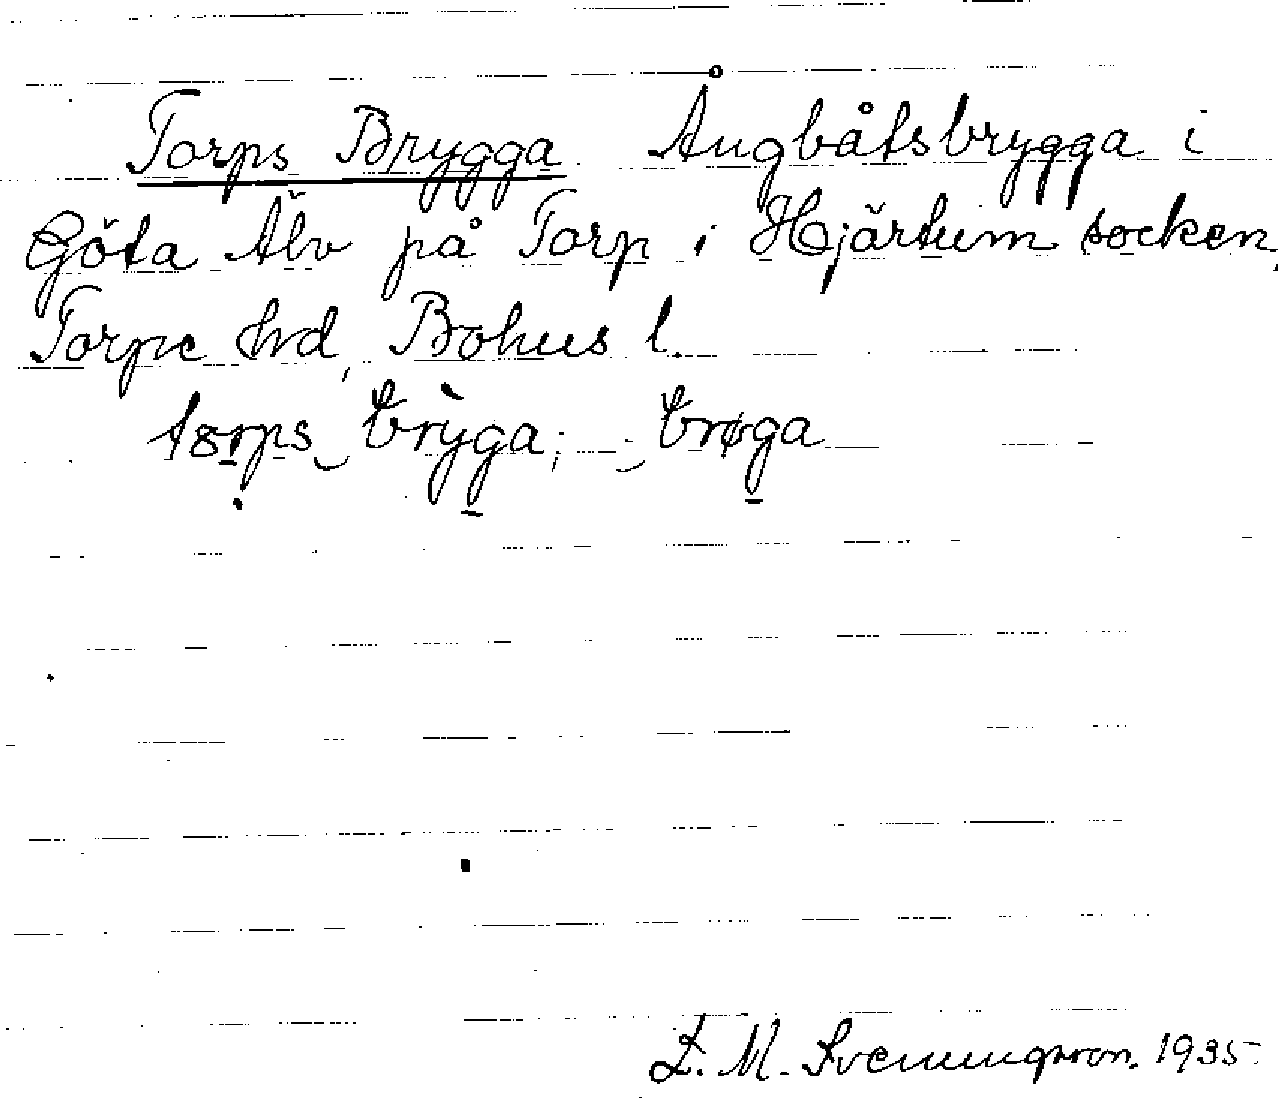 Torps Brygga. Ångbåtsbrygga i
Göta Älv på Torp i Hjärtum socken,
Torpe hrd, Bohus l.
tɔrps bry̆ga; -; brøga
L. M. Svenungsson. 1935